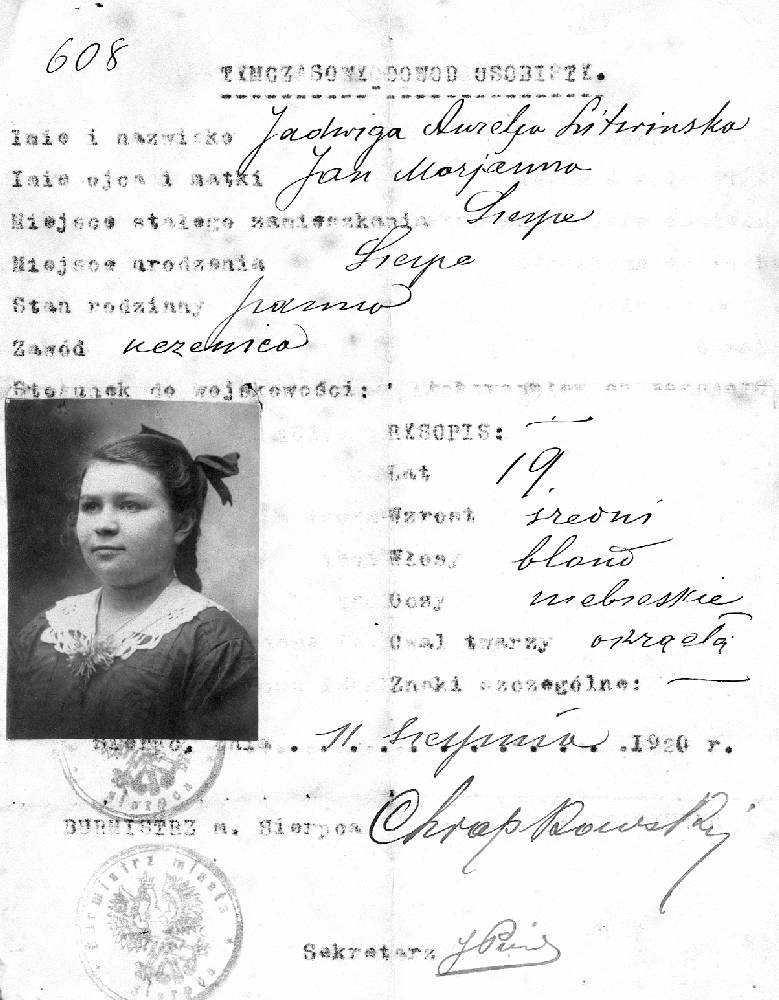 608
TYMCZASOWY DOWOD OSOBISTY.
Imie i nazwisko Jadwiga Aurelja Litwinska
Imie ojca i matki Jan Marjanna
Miejsce stałego zamieszkania Sierpc
Miejsce urodzenia Sierpc
Stan rodzinny panna
Zawód uczenica
Stosunek do wojskowości:
RYSOPIS: —
Lat 19.
Wzrost średni
Włosy blond
Oczy niebieskie
Owal twarzy okrągła
Znaki szczególne: —
Sierpc, dnia . 11. sierpnia . 1920 r.
Sierpca
BURMISTRZ m. Sierpca Chrapkowskij
Burmistrz miasta
Sierpca
Sekretarz